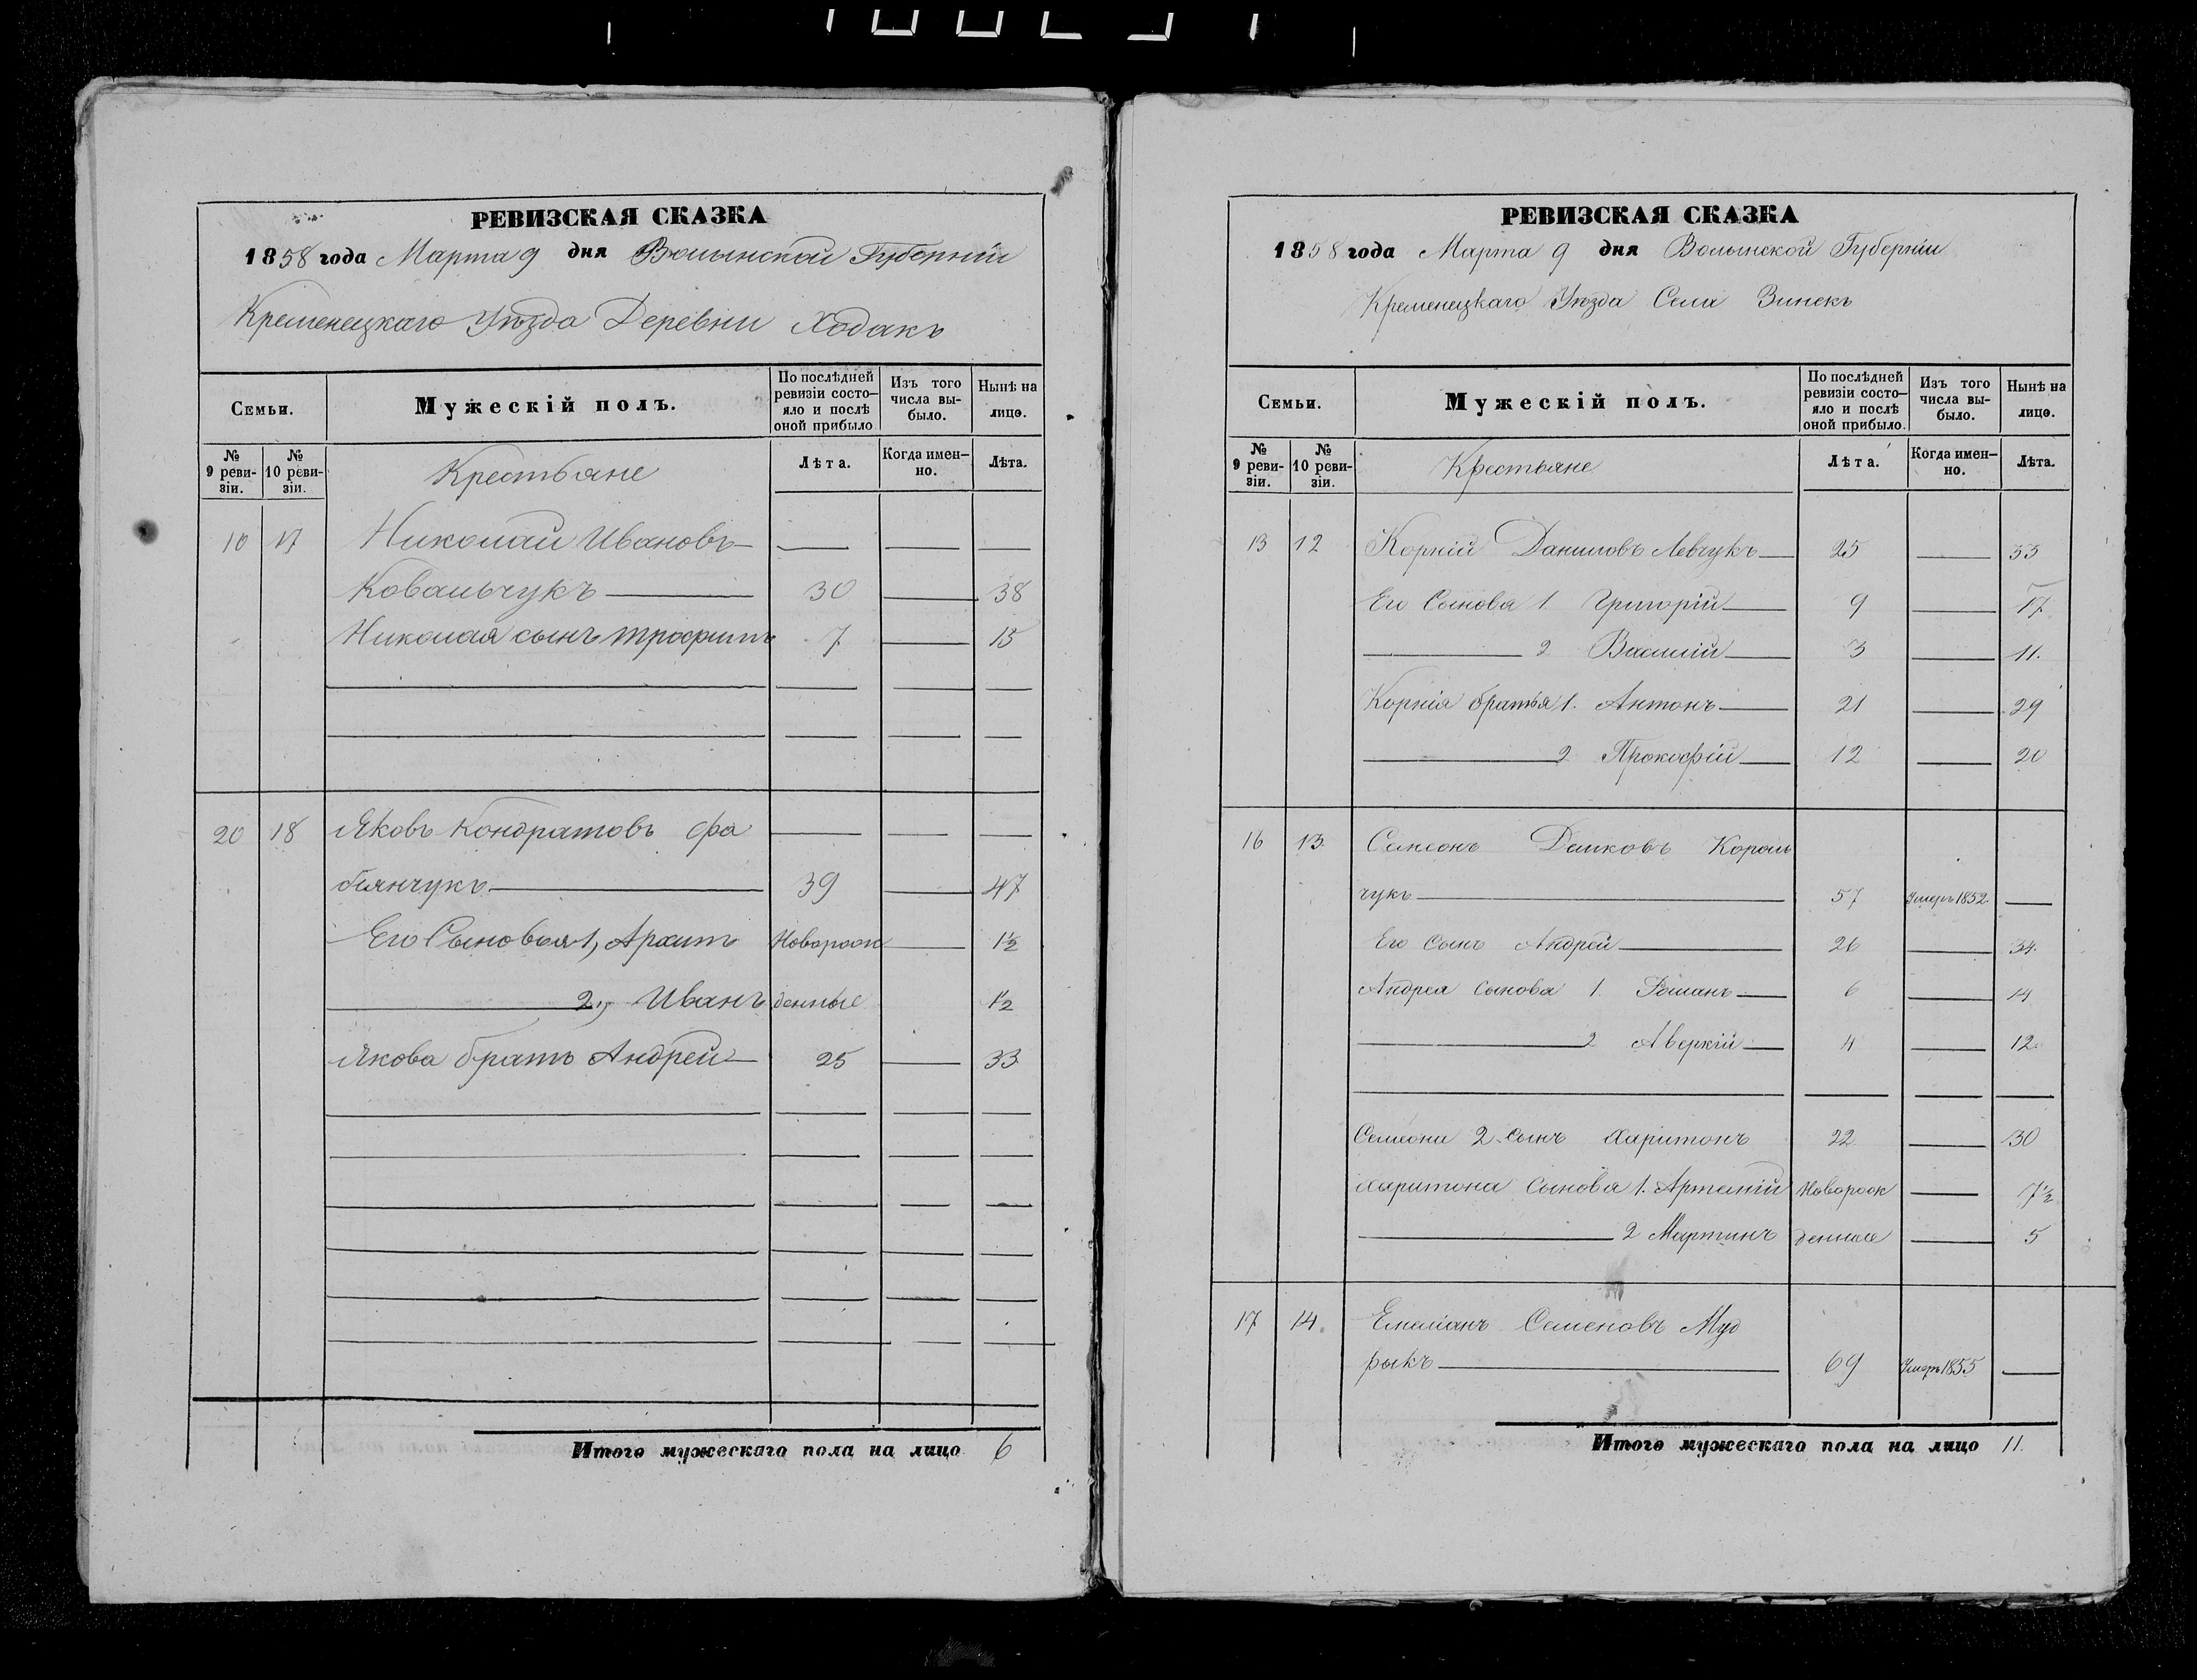 РЕВИЗСКАЯ СКАЗКА
1858 года Марта 9 дня Волынской Губерніи
Кременецкаго Уѣзда Деревни Ходакъ
Семьи.
Мужескій полъ.
По послѣдней ревизіи состояло и послѣ оной прибыло
Изъ того числа выбыло.
Нынѣ на лицо.
№ 9 ревизіи.
№ 10 ревизіи.
Крестьяне
Лѣта.
Когда именно.
Лѣта.
10 17 Николай Ивановъ
Ковальчукъ 30 38
Николая сынъ Трофимъ 7 15
20 18 Яковъ Кондратовъ Фа
біянчукъ 39 47
Его Сыновья 1, Архипъ Новорож 1½
2, Иванъ денные 1½
Якова братъ Андрей 25 33
Итого мужескаго пола на лицо 6
РЕВИЗСКАЯ СКАЗКА
1858 года Марта 9 дня Волынской Губерніи
Кременецкаго Уѣзда Села Зинекъ
Семьи.
Мужескій полъ.
По послѣдней ревизіи состояло и послѣ оной прибыло.
Изъ того числа выбыло.
Нынѣ на лицо.
№ 9 ревизіи.
№ 10 ревизіи.
Крестьяне
Лѣта.
Когда именно.
Лѣта.
13 12 Корній Даниловъ Левчукъ 25 33
Его Сынова 1 Григорій 9 17
2 Василій 3 11.
Корнія братья 1. Антонъ 21 29
2 Прокофій 12 20
16 13 Королъ
чукъ 57 Умеръ 1852
Его сынъ Андрей 26 34.
Андрея сынова 1. Романъ 6 14
2 Аверкій 4 12
2 сынъ Харитонъ 22 30
Харитона Сынова 1. Артемій Новорож 7½
2 Мартинъ денные 5
17 14. Емеліанъ Семеновъ Муд
рыкъ 69 Умеръ 1855
Итого мужескаго пола на лицо 11.